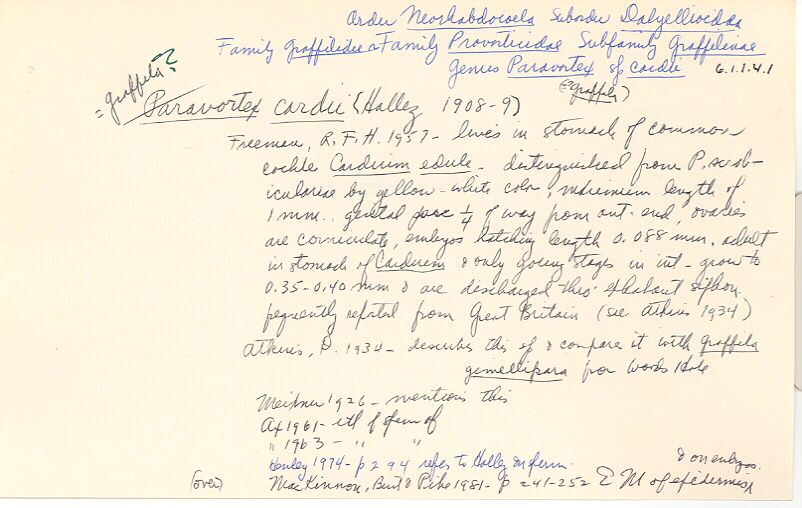 Order Neorhabdocoela Suborder Dalyellioidea
Family Graffillidae Family Provorticidae Subfamily Graffilinae
Genus Paravortex sp cardii 6.1.1.4.1
(=graffila)
=graffila?
Paravortex cardii (Hallez 1908-9)
Freeman, R.F.H. 1957 - lives in stomach of common
cockle Cardium edule - distinguished from P. scrob-
iculariae by yellow-white color, maximum length of
1 mm., genital pore 1/4 of way from ant. end, ovaries
are corniculate, embryos hatching length 0.088 mm. adult
in stomach of Cardium & only young stages in int - grow to
0.35-0.40 mm & are discharged thro' exhalant siphon.
frequently reported from Great Britain (see Atkins 1934)
Atkins, D. 1934 - describes this sp & compares it with graffila
gemellipara from Woods Hole
Meixner 1926 - mentions this
Ax 1961 - of
" 1963 - " "
Henley 1974 - p 294 refers to Hallez on
(over) MacKinnon, Burt & Pike 1981 - p 241-252 EM of epidermis
& on embryos.